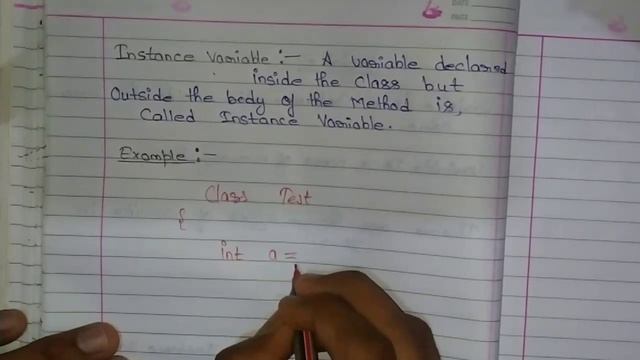 DATE
PAGE
Instance Variable :- A variable declared
inside the class but
Outside the body of the Method is,
Called Instance Variable.
Example :-
Class Test
{
int a =